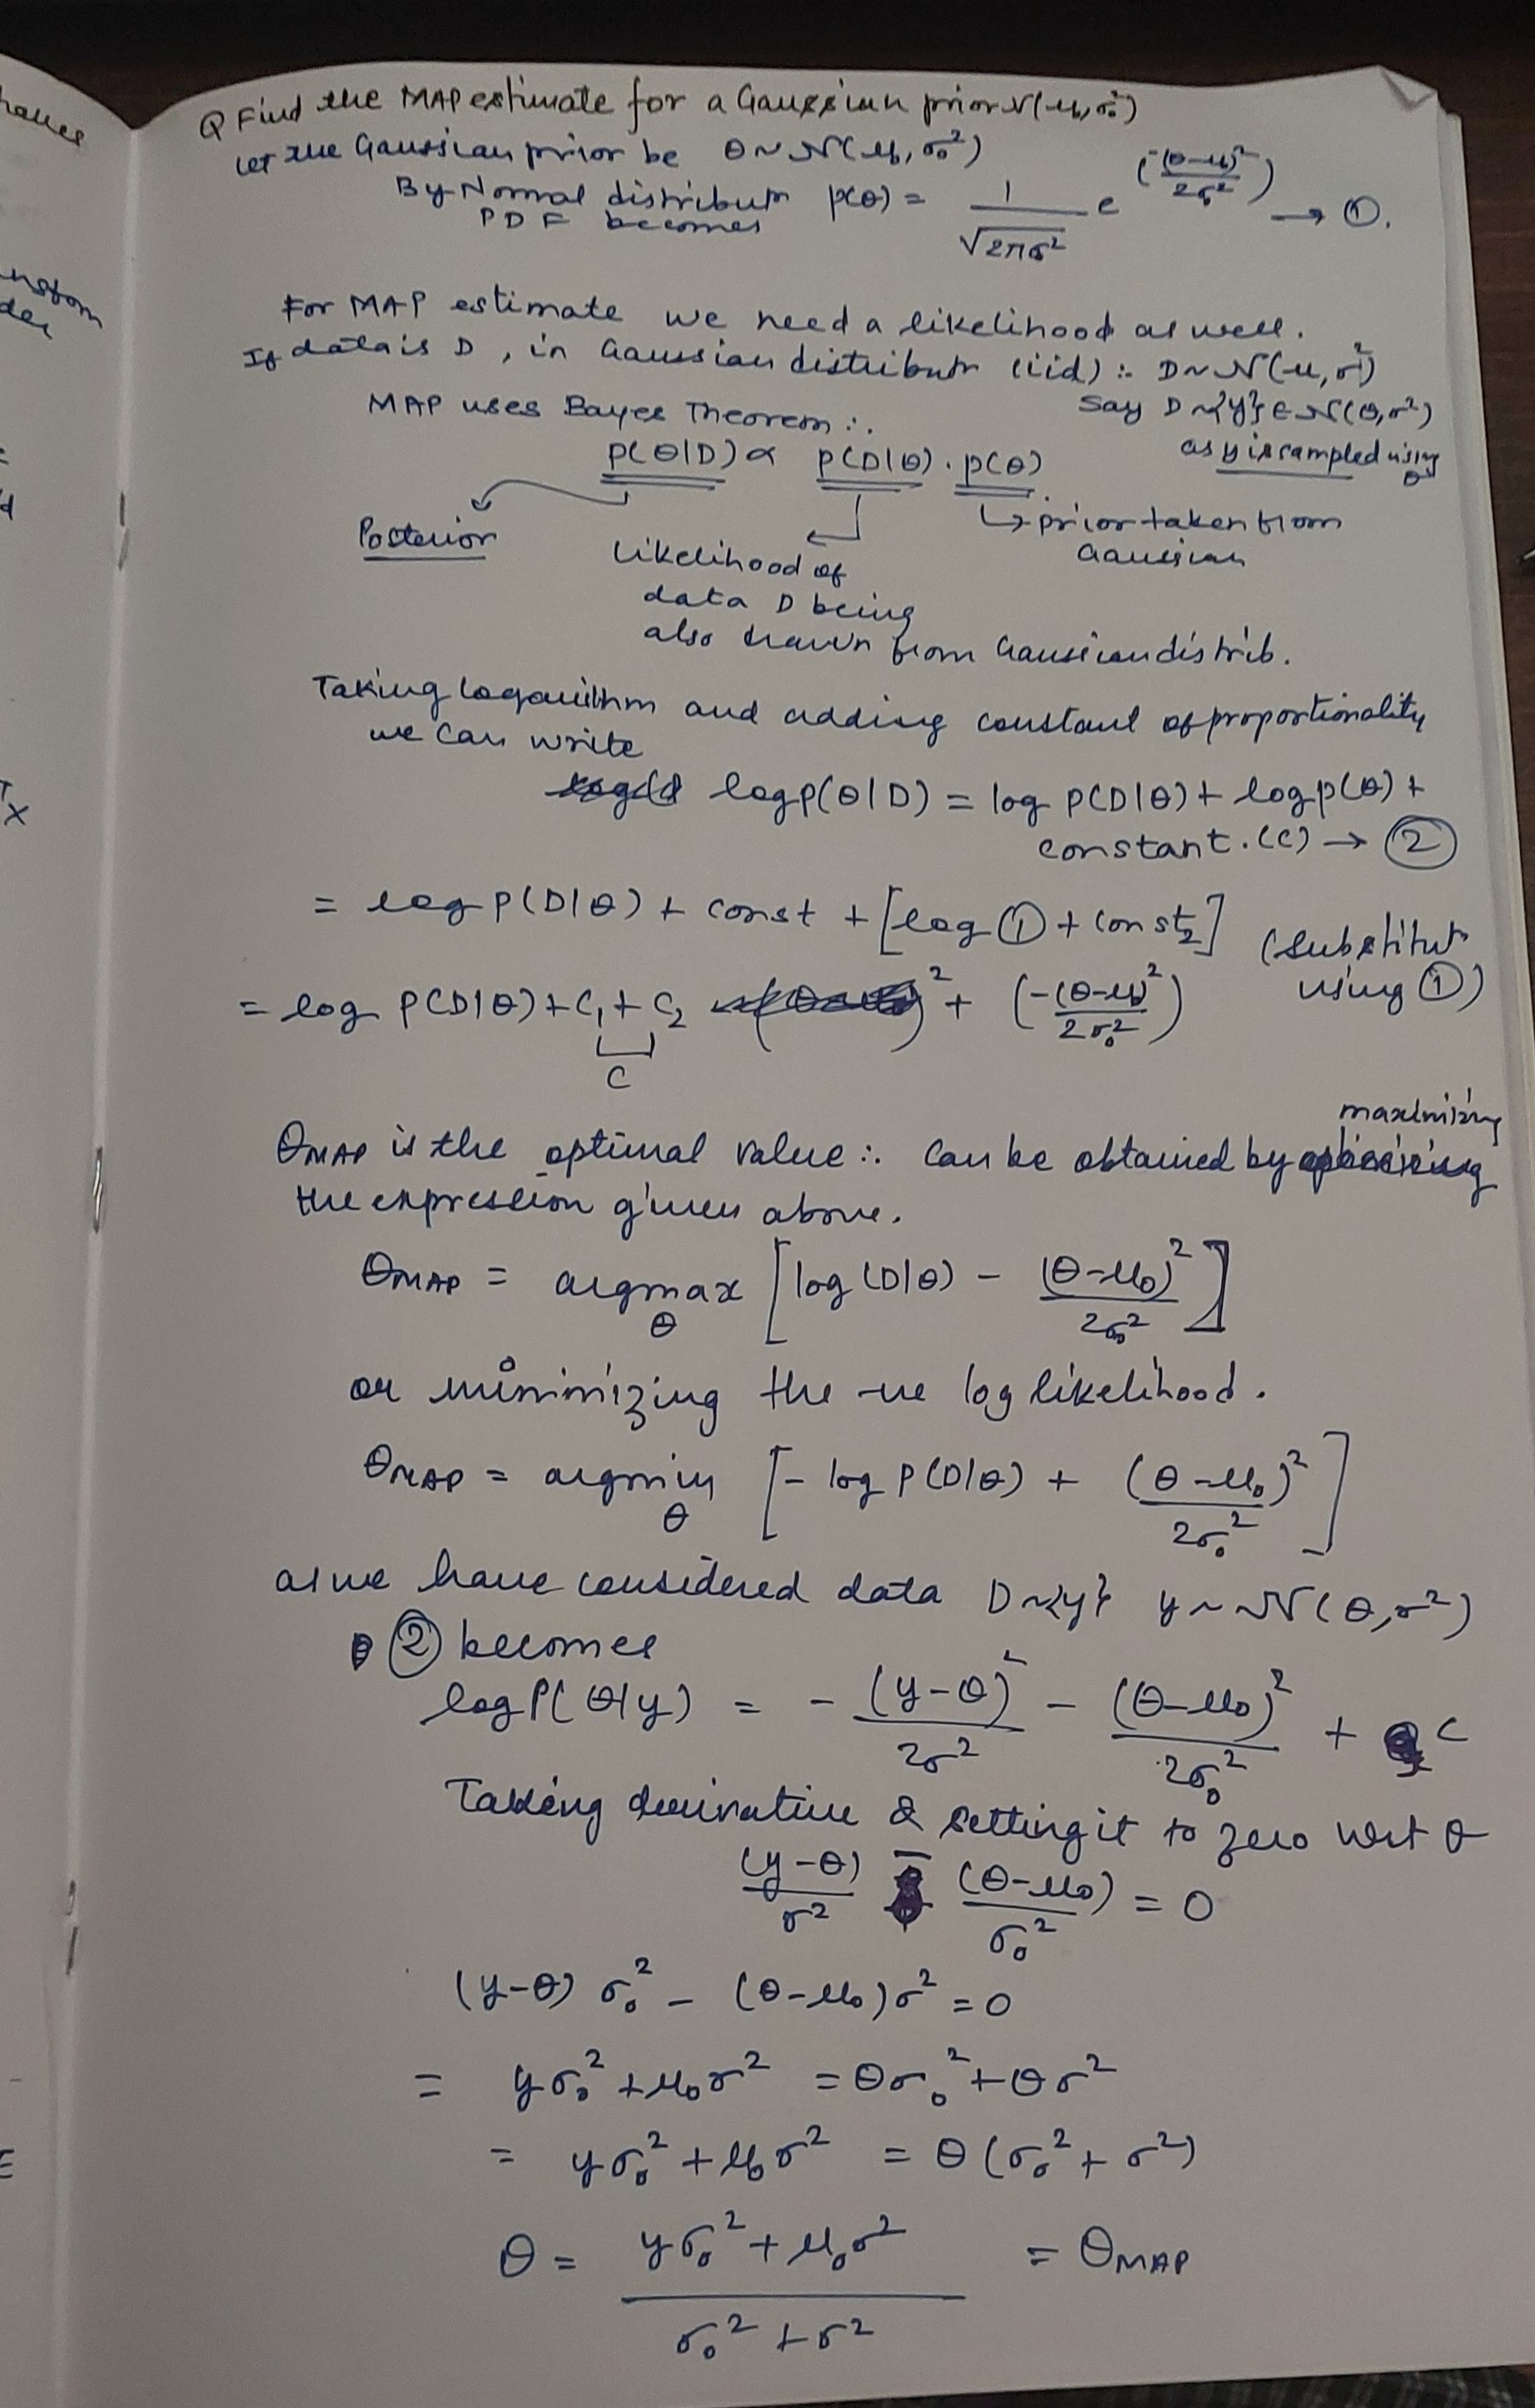 Q Find the MAP estimate for a Gaussian prior N(μ₀,σ₀²)
Let the Gaussian prior be θ ~ N(μ₀, σ₀²)
By Normal distributn p(θ) = 1/√2πσ² e^(-(θ-μ₀)²/2σ₀²) → ①.
PDF becomes
For MAP estimate we need a likelihood as well.
If data is D, in Gaussian distributn (iid) ∴ D ~ N(μ, σ²)
MAP uses Bayes Theorem ∴
Say D ~ {y} ∈ N(θ,σ²)
as y is sampled using θ
p(θ|D) ∝ p(D|θ) . p(θ)
Posterior
Likelihood of data D being also drawn from Gaussian distrib.
↳ prior taken from Gaussian
Taking logarithm and adding constant of proportionality
we can write
log p(θ|D) = log P(D|θ) + log p(θ) +
constant.(C) → ②
= log P(D|θ) + const + [log ① + const₂] (substitut
using ①)
= log P(D|θ) + C₁ + C₂ ² + (-(θ-μ₀)²/2σ₀²)
C
θMAP is the optimal value ∴ can be obtained by maximizing
the expression given above.
θMAP = argmax θ [log (D|θ) - (θ-μ₀)²/2σ₀²]
or minimizing the -ve log likelihood.
θMAP = argmin θ [- log P(D|θ) + (θ-μ₀)²/2σ₀²]
as we have considered data D ~ {y} y ~ N(θ,σ²)
② becomes
log P(θ|y) = - (y-θ)²/2σ² - (θ-μ₀)²/2σ₀² + C
Taking derivative & setting it to zero wrt θ
(y-θ)/σ² - (θ-μ₀)/σ₀² = 0
(y-θ) σ₀² - (θ-μ₀)σ² = 0
= yσ₀² + μ₀σ² = θσ₀² + θσ²
= yσ₀² + μ₀σ² = θ(σ₀² + σ²)
θ = yσ₀² + μ₀σ² / σ₀² + σ² = θMAP